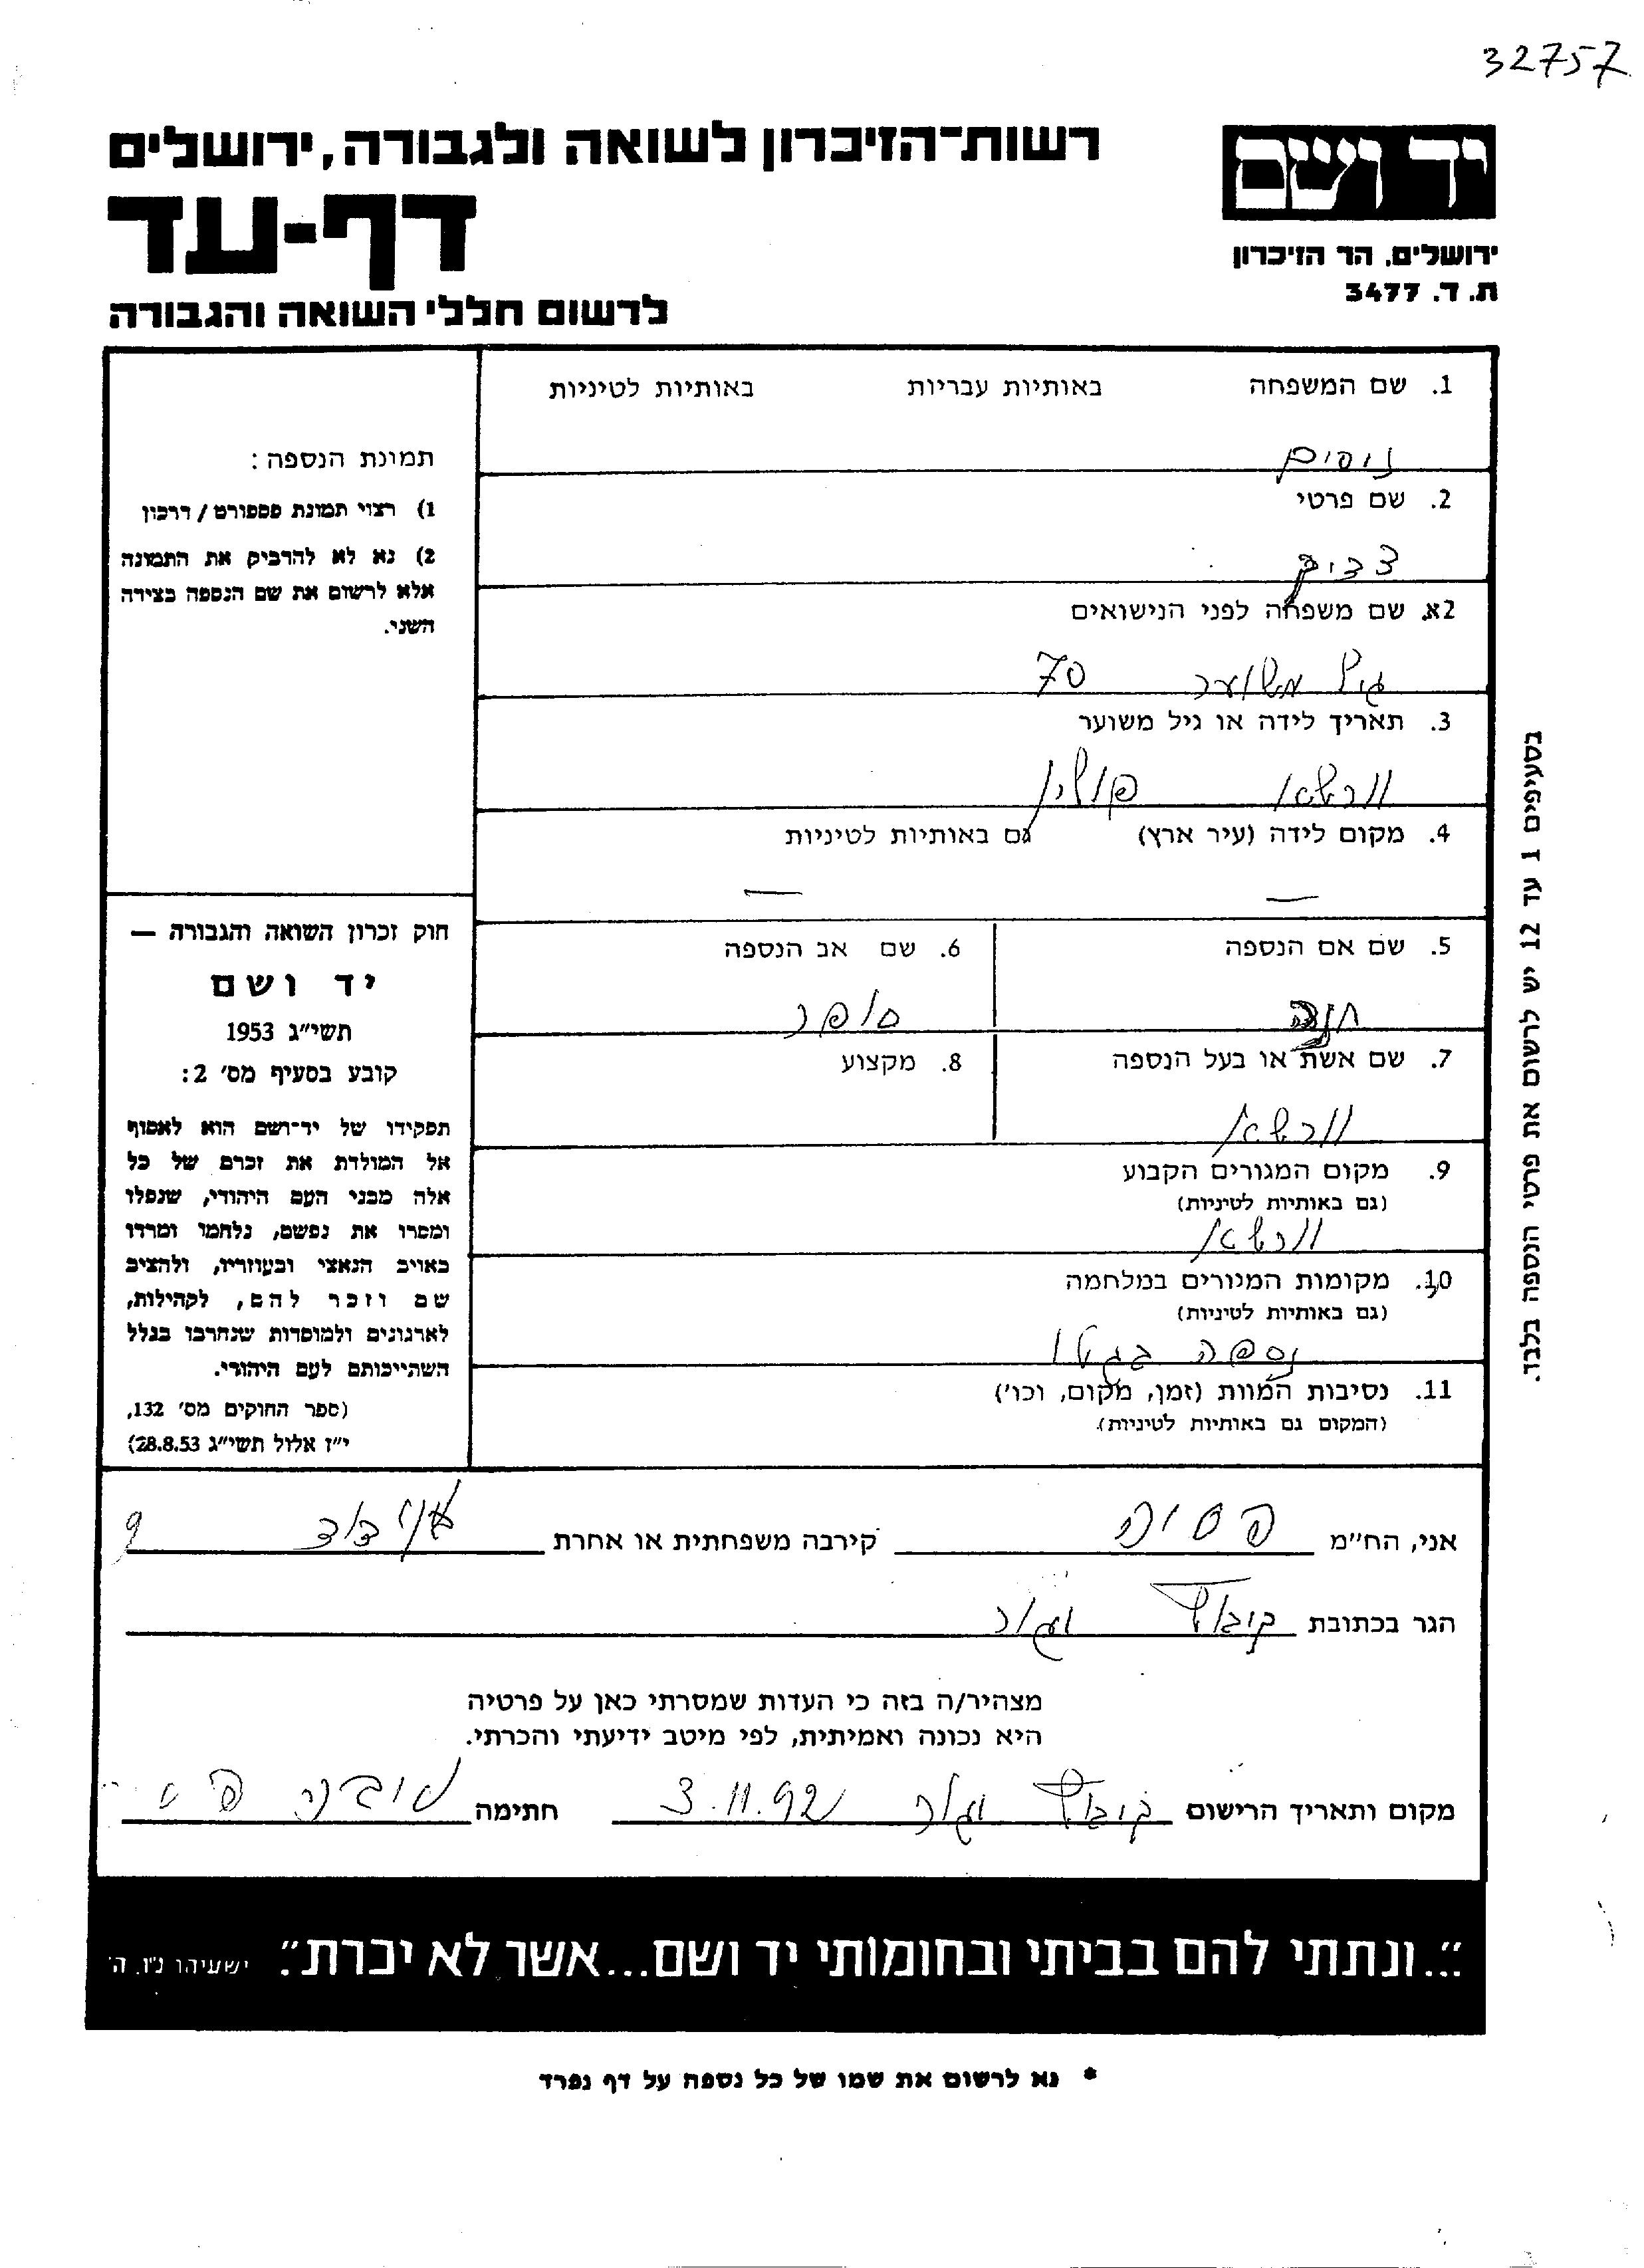 32757
יד ושם
ירושלים. הר הזיכרון
ת. ד. 3477
רשות־הזיכרון לשואה ולגבורה, ירושלים
דף-עד
לרשום חללי השואה והגבורה
1. שם המשפחה באותיות עבריות באותיות לטיניות
ניסים
2. שם פרטי
2א. שם משפחה לפני הנישואים
גיל משוער 70
3. תאריך לידה או גיל משוער
וורשא פולין
4. מקום לידה (עיר ארץ) גם באותיות לטיניות
— —
5. שם אם הנספה 6. שם אב הנספה
חנה סופר
7. שם אשת או בעל הנספה 8. מקצוע
וורשא
9. מקום המגורים הקבוע
(גם באותיות לטיניות)
וורשא
10. מקומות המיורים במלחמה
(גם באותיות לטיניות)
נספה בגטו
11. נסיבות המוות (זמן, מקום, וכו')
(המקום גם באותיות לטיניות).
תמונת הנספה:
1) רצוי תמונת פספורט / דרכון
2) נא לא להדביק את התמונה
אלא לרשום את שם הנספה בצידה
השני.
חוק זכרון השואה והגבורה —
יד ושם
תשי"ג 1953
קובע בסעיף מס' 2:
תפקידו של יד־ושם הוא לאסוף
אל המולדת את זכרם של כל
אלה מבני העם היהודי, שנפלו
ומסרו את נפשם, נלחמו ומרדו
באויב הנאצי ובעוזריו, ולהציב
שם וזכר להם, לקהילות,
לארגונים ולמוסדות שנחרבו בגלל
השתייכותם לעם היהודי.
(ספר החוקים מס' 132,
י"ז אלול תשי"ג 28.8.53)
בסעיפים 1 עד 12 יש לרשום את פרטי הנספה בלבד.
אני, הח"מ פסיה קירבה משפחתית או אחרת
הגר בכתובת
מצהיר/ה בזה כי העדות שמסרתי כאן על פרטיה
היא נכונה ואמיתית, לפי מיטב ידיעתי והכרתי.
מקום ותאריך הרישום 3.11.92 חתימה
"...ונתתי להם בביתי ובחומותי יד ושם...אשר לא יכרת". ישעיהו נ"ו, ה'
* נא לרשום את שמו של כל נספה על דף נפרד